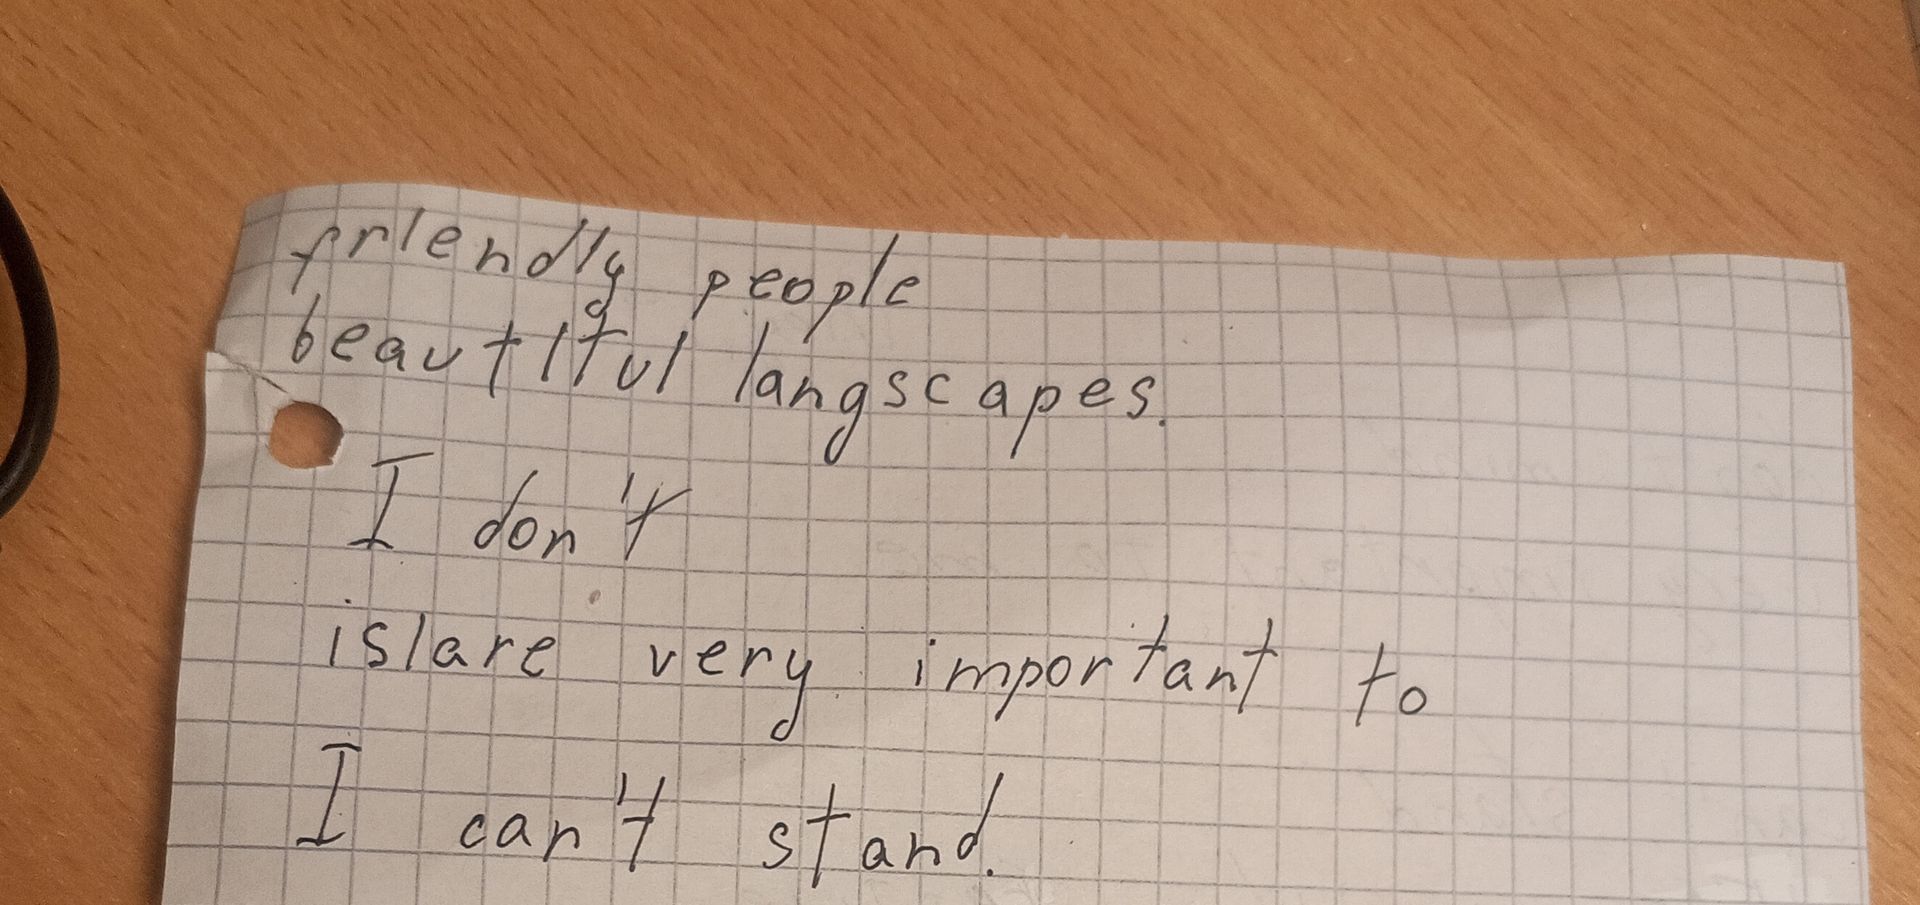 friendly people
beautiful langscapes.
I don't
is/are very important to
I can't stand.